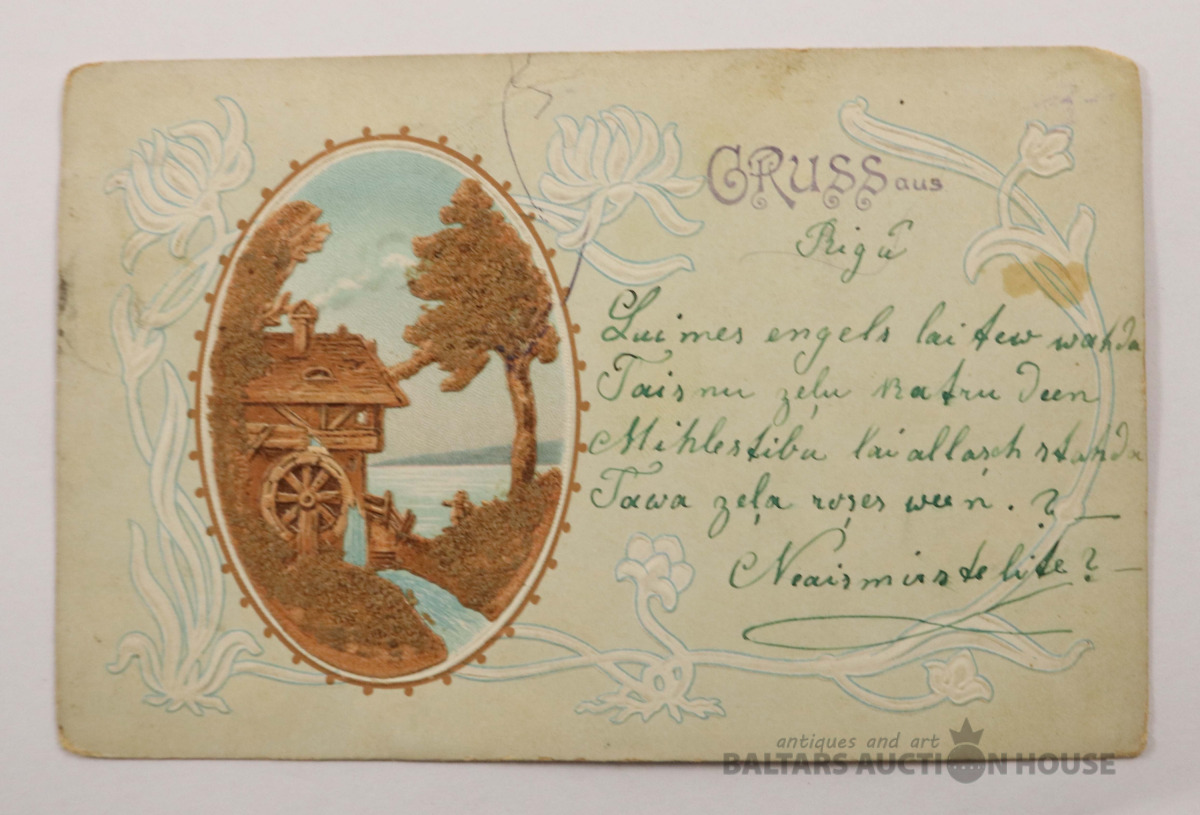 GRUSS aus
Rigā
Laimes engels lai tew wahda
Taisnu zeļu katru deen
Mihlestiba lai allasch stahda
Tawa zeļa roşes ween . ? —
Neaismirstelite ? —
antiques and art
BALTARS AUCTION HOUSE